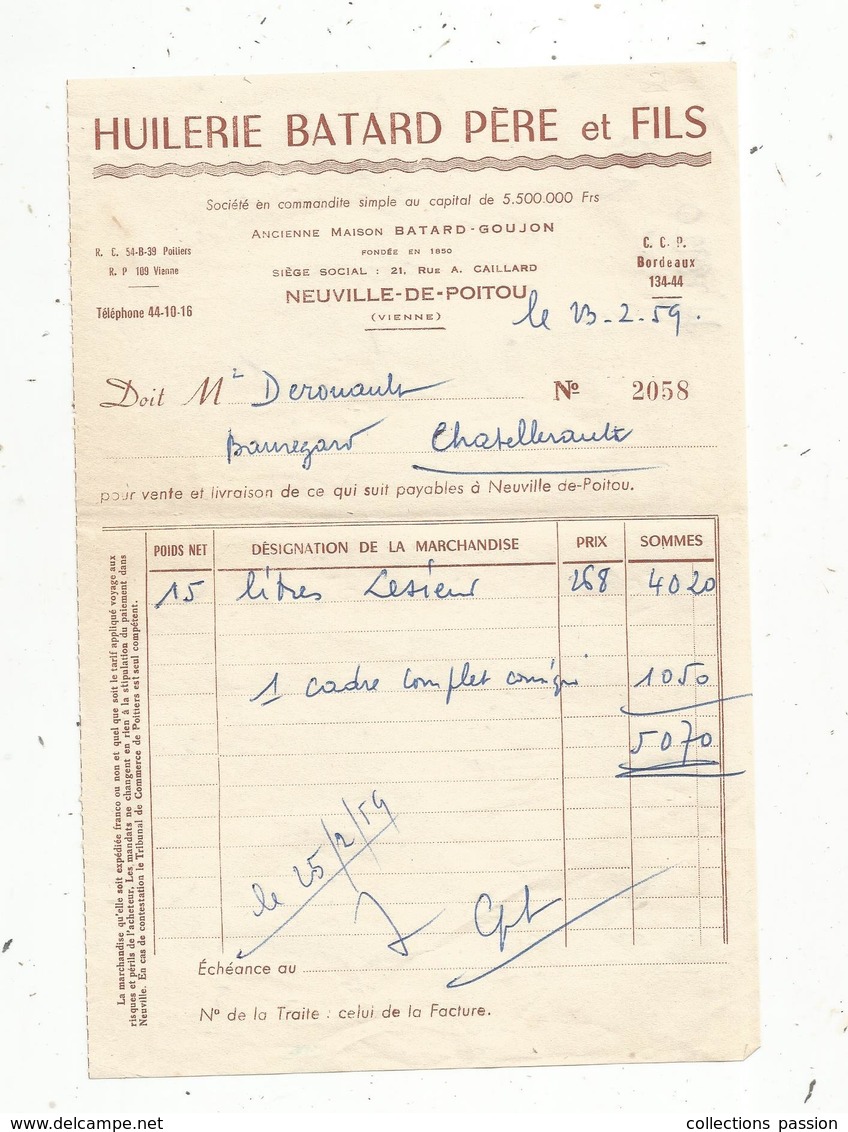 HUILERIE BATARD PÈRE et FILS
Société en commandite simple au capital de 5.500.000 Frs
ANCIENNE MAISON BATARD-GOUJON
FONDÉE EN 1850
SIÈGE SOCIAL : 21, RUE A. CAILLARD
NEUVILLE-DE-POITOU
(VIENNE)
R. C. 54-B-39 Poitiers
R. P 109 Vienne
Téléphone 44-10-16
C. C. P.
Bordeaux
134-44
le 23-2-59.
Doit Mr Derouault No 2058
Beauregard Chatellerault
pour vente et livraison de ce qui suit payables à Neuville de-Poitou.
POIDS NET DÉSIGNATION DE LA MARCHANDISE PRIX SOMMES
15 litres Lesieur 268 4020
1 cadre complet consigné 1050
5070
le 25/2/59
Cpt
Échéance au
No de la Traite : celui de la Facture.
La marchandise qu'elle soit expédiée franco ou non et quel que soit le tarif appliqué voyage aux
risques et périls de l'acheteur, Les mandats ne changent en rien à la stipulation du paiement dans
Neuville. En cas de contestation le Tribunal de Commerce de Poitiers est seul compétent.
www.delcampe.net
collections passion